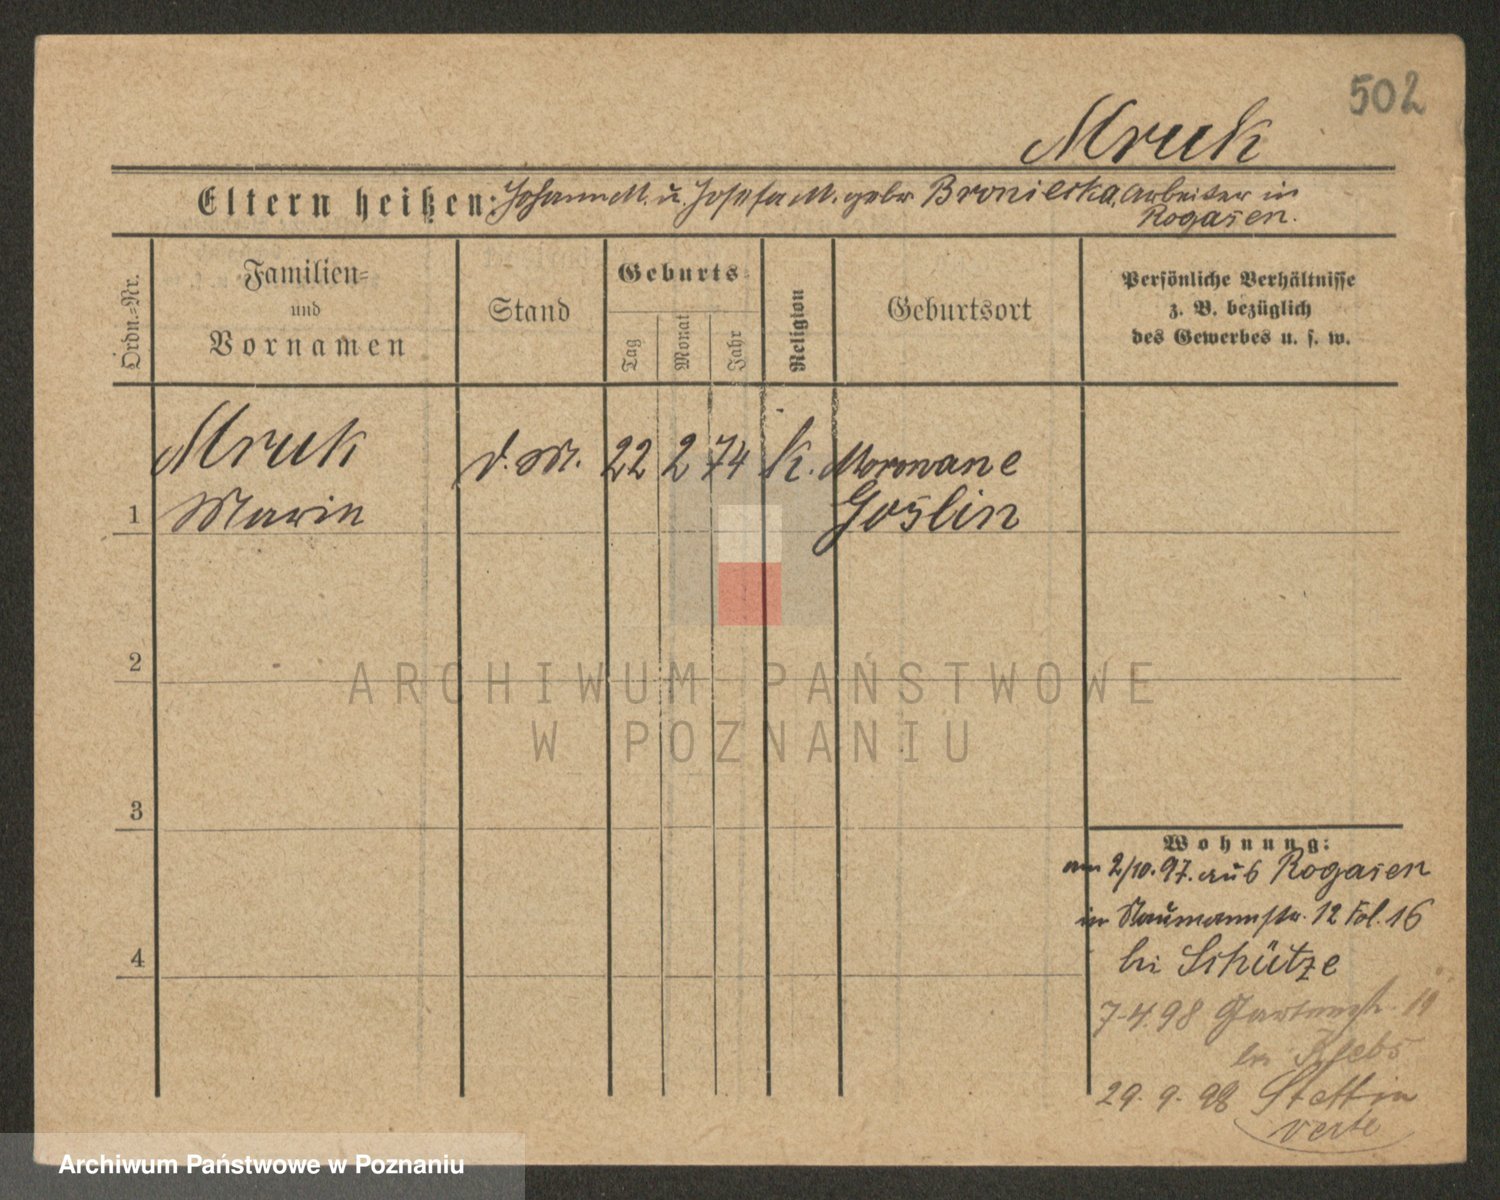 502
Mruk
Eltern heißen: Johann M. u. Josefa M. gebr Bronierka, Arbeiter in
Rogasen.
Ordn.-Nr.
Familien-
und
Vornamen
Stand
Geburts
Tag
Monat
Jahr
Religion
Geburtsort
Persönliche Verhältnisse
z. B. bezüglich
des Gewerbes u. s. w.
Mruk
d. M. 22 2 74 k. Morowane
1 Marin
Goslin
2
3
4
Wohnung:
am 2/10.97. aus Rogasen
in Naumannstr. 12 Fol. 16
bei Schütze
7-4.98 Gartenstr. 19
bei Klebs
29. 9. 98 Stettin
verte
ARCHIWUM PAŃSTWOWE
W POZNANIU
Archiwum Państwowe w Poznaniu